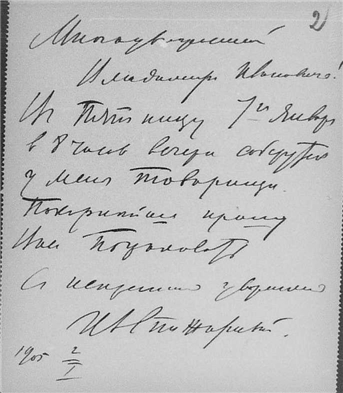 2
Многоуважаемый
Владимир Иванович!
Въ Пятницу 7го Января
в 8 часов вечера соберутся
у меня товарищи.
Покорнейше прошу
Вас Пожаловать
С искренним уважением
1905 2/I